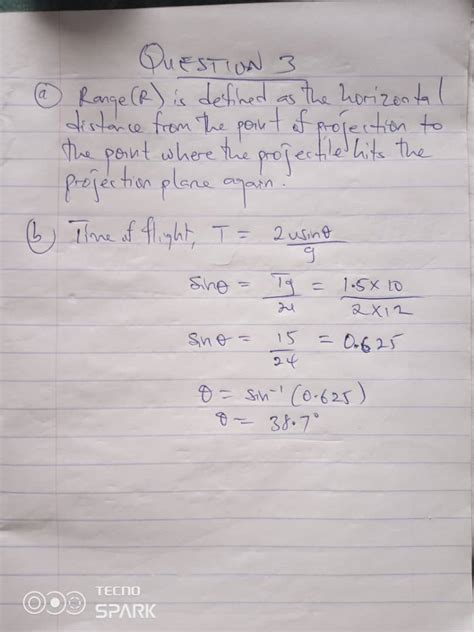 QUESTION 3
(a) Range (R) is defined as the horizontal
distance from the point of projection to
the point where the projectile hits the
projection plane again.
(b) Time of flight, T = 2usinθ/g
sinθ = Tg/2u = 1.5×10/2×12
sinθ = 15/24 = 0.625
θ = sin⁻¹(0.625)
θ = 38.7°
TECNO
SPARK